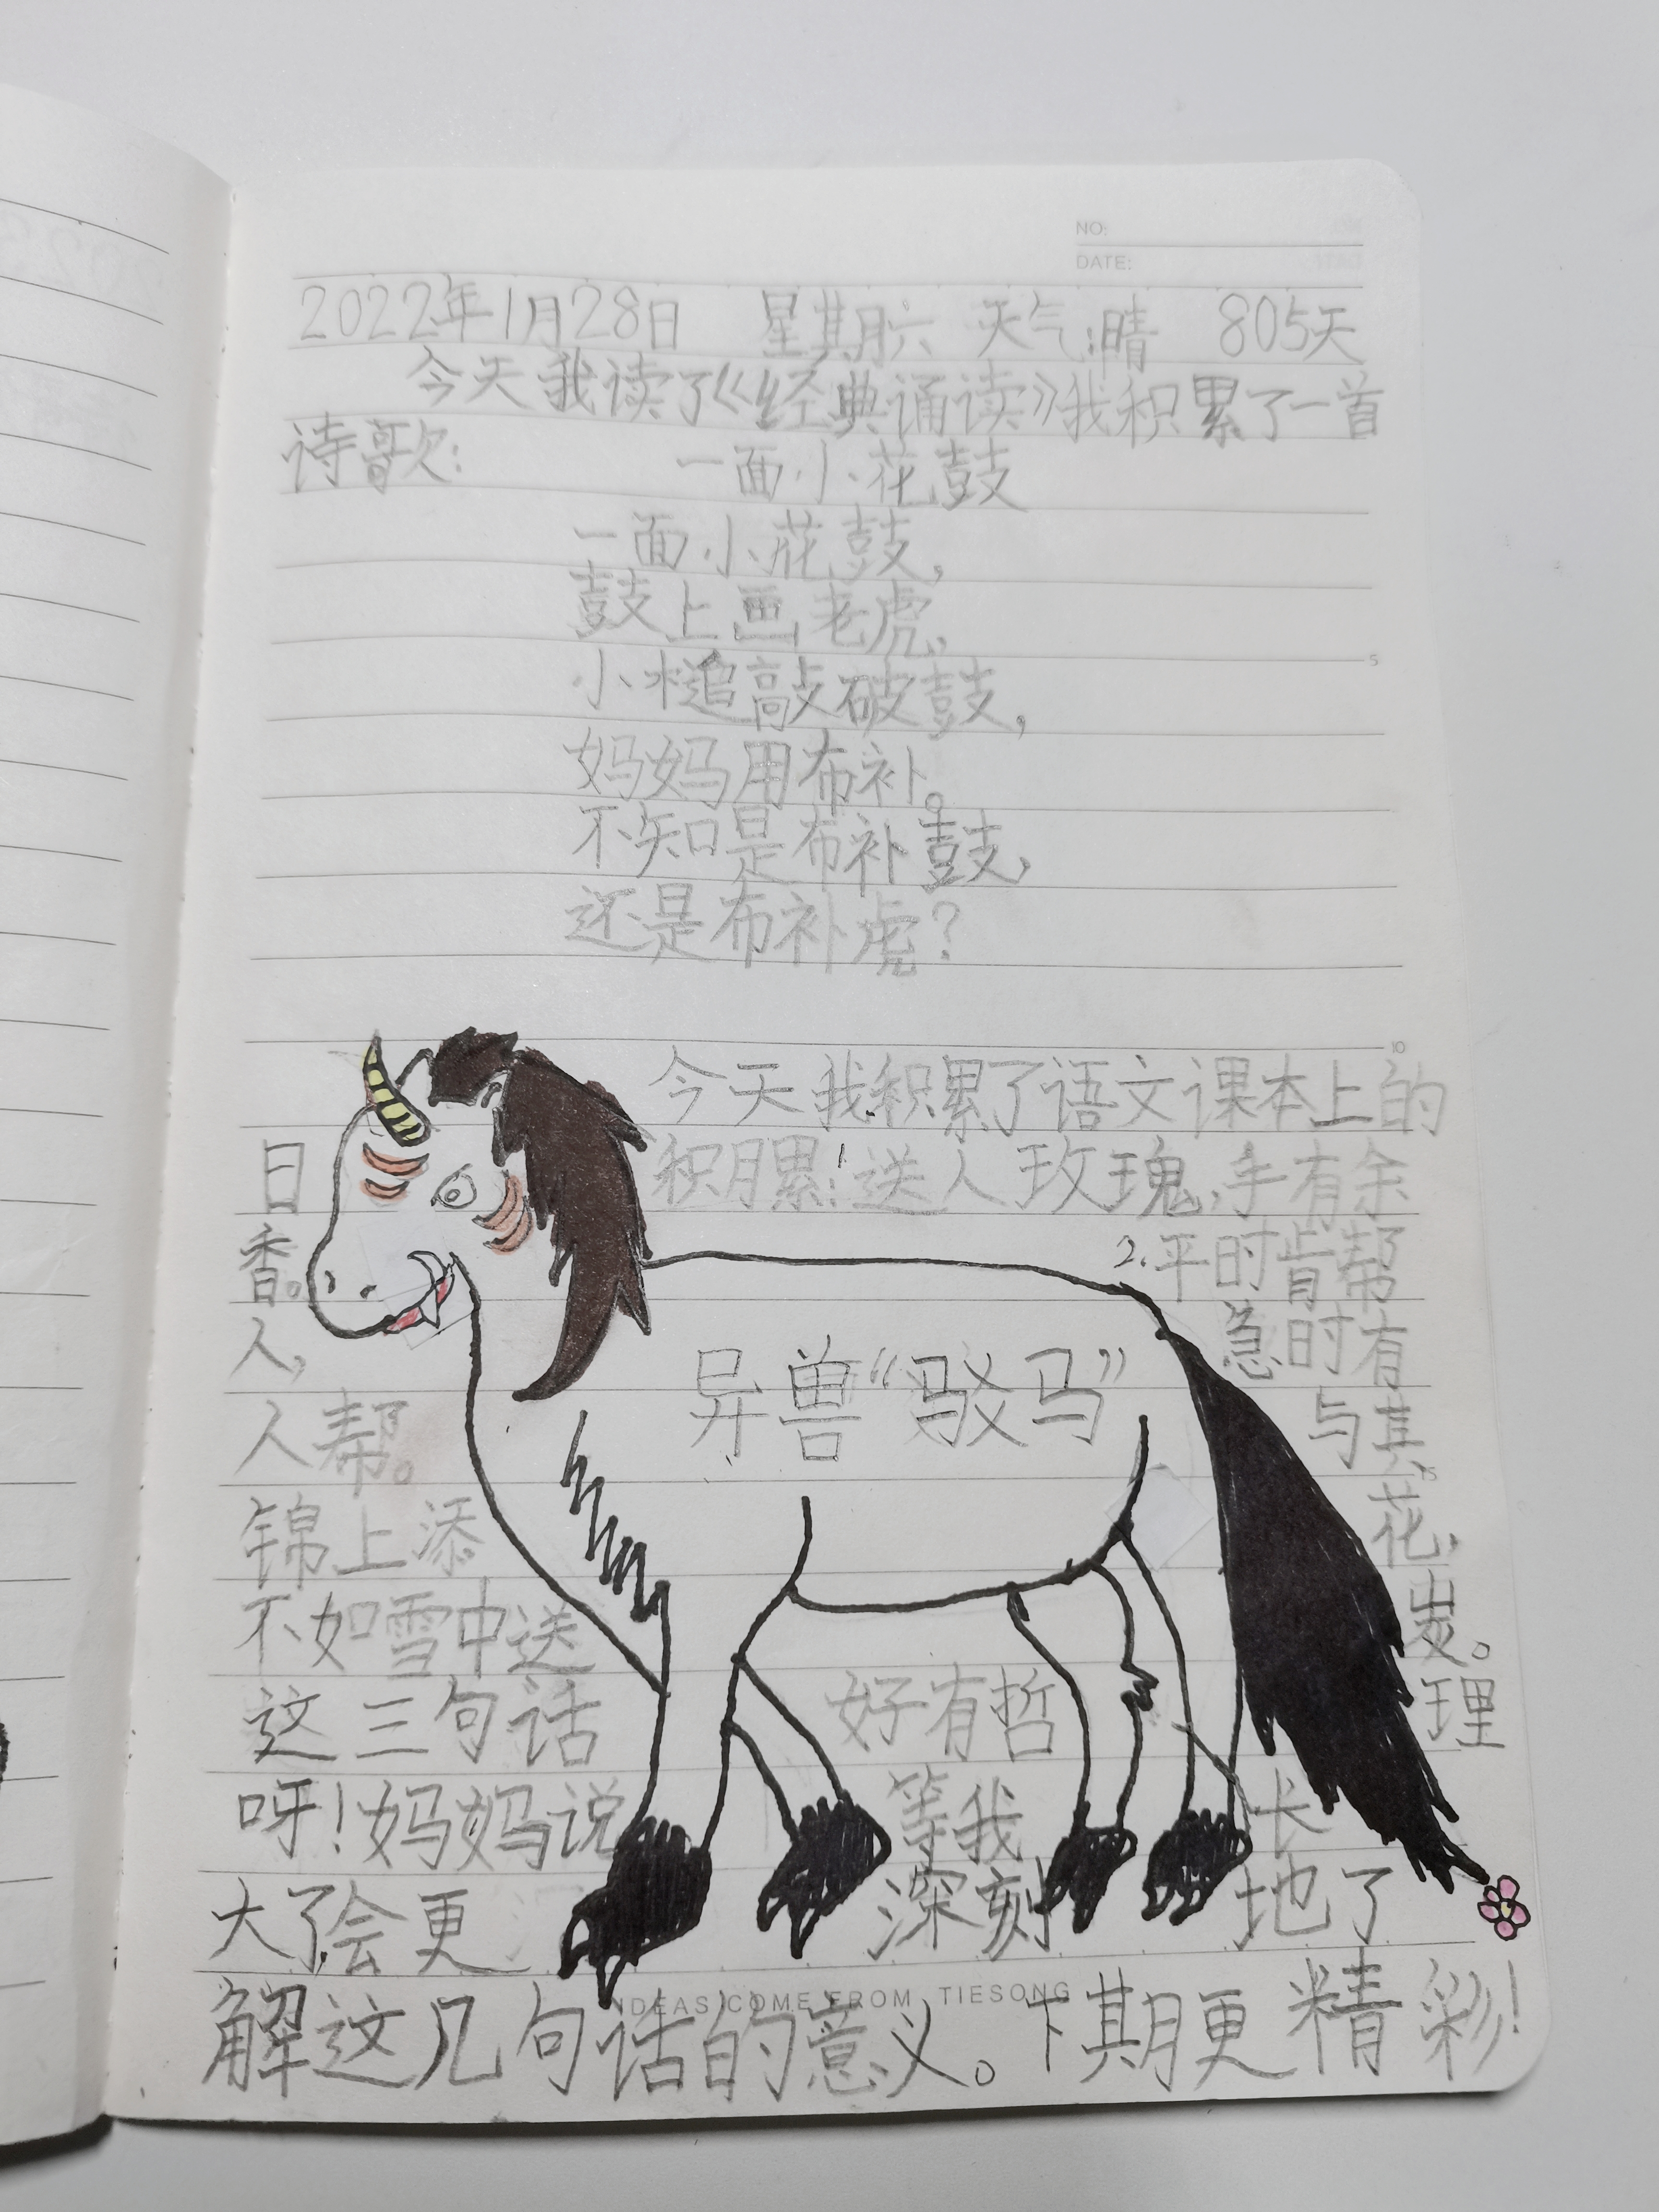 NO:
DATE:
2022年1月28日 星期六 天气:晴 805天
今天我读了《经典诵读》我积累了一首
诗歌: 一面小花鼓
一面小花鼓,
鼓上画老虎,
5
小槌敲破鼓,
妈妈用布补。
不知是布补鼓,
还是布补虎?
10
今天我积累了语文课本上的
日积月累:1.送人玫瑰,手有余
香。 2.平时肯帮
人, 急时有
异兽“驳马”
人帮。 与其
15
锦上添 花,
不如雪中送 炭。
这三句话 好有哲 理
呀!妈妈说 等我 长
大了会更 深刻 地了
IDEAS COME FROM TIESONG
解这几句话的意义。下期更精彩!